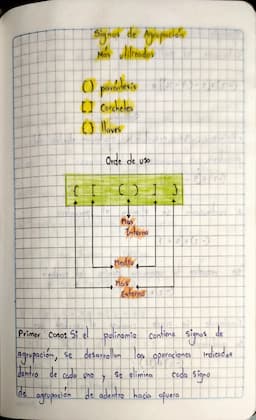 Signos de Agrupación
Más utilizados
() paréntesis
[] Corchetes
{} llaves
Orde de uso
{ [ ( ) ] }
Más
Interno
Medio
Más
Externo
Primer Caso: Si el polinomio contiene signos de
agrupación, se desarrollan las operaciones indicadas
dentro de cada uno y se elimina cada signo
de agrupación de adentro hacia afuera